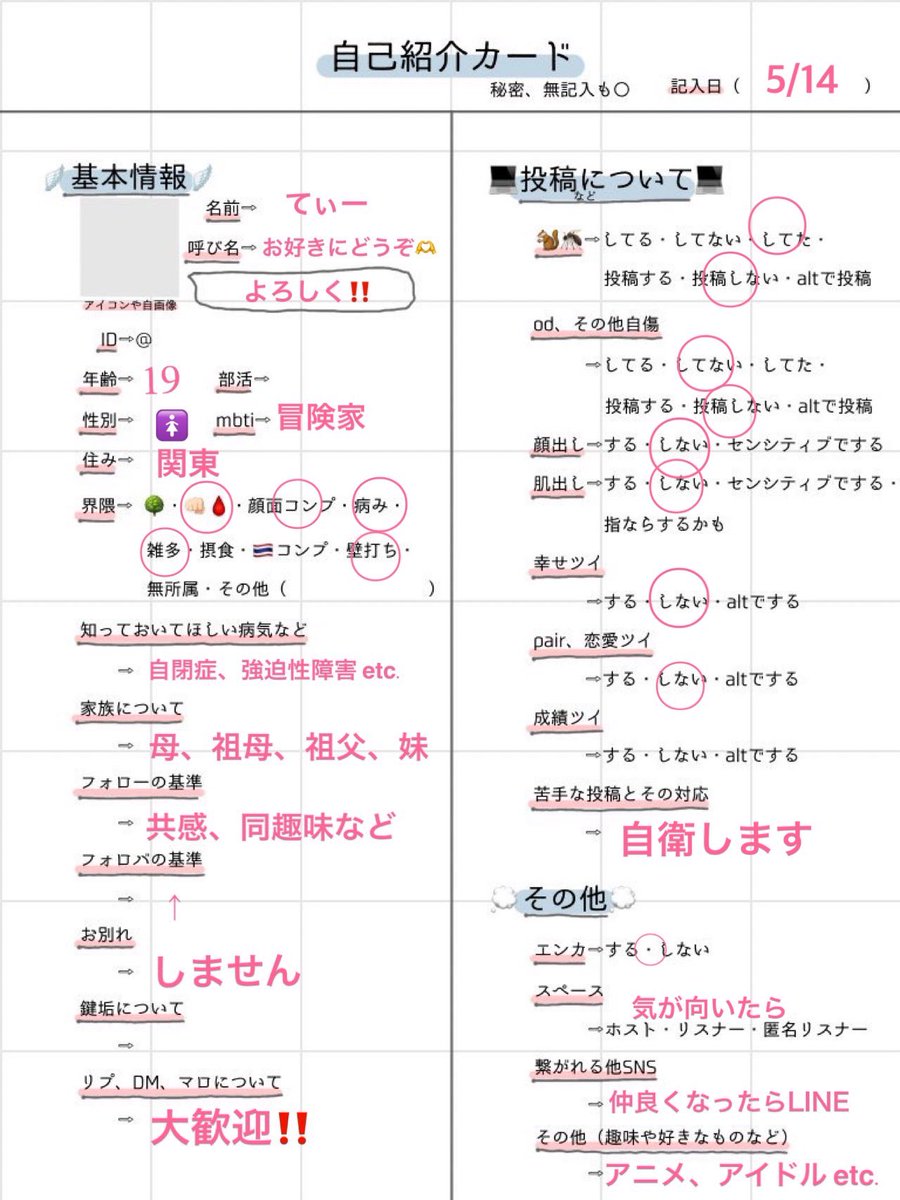 自己紹介カード
秘密、無記入も〇 記入日（ 5/14 ）
🪽基本情報🪽
名前⇨ てぃー
呼び名⇨ お好きにどうぞ🫶
よろしく‼️
アイコンや自画像
ID⇨@
年齢⇨ 19 部活⇨
性別⇨ 🚺 mbti⇨ 冒険家
住み⇨ 関東
界隈⇨ 🌳・👊🏻🩸・顔面コンプ・病み・
雑多・摂食・🇹🇭コンプ・壁打ち・
無所属・その他（ ）
知っておいてほしい病気など
⇨ 自閉症、強迫性障害 etc.
家族について
⇨ 母、祖母、祖父、妹
フォローの基準
⇨ 共感、同趣味など
フォロバの基準
⇨ ↑
お別れ
⇨ しません
鍵垢について
⇨
リプ、DM、マロについて
⇨ 大歓迎‼️
💻投稿について💻
など
🐿️🦟⇨してる・してない・してた・
投稿する・投稿しない・altで投稿
od、その他自傷
⇨してる・してない・してた・
投稿する・投稿しない・altで投稿
顔出し⇨する・しない・センシティブでする
肌出し⇨する・しない・センシティブでする・
指ならするかも
幸せツイ
⇨する・しない・altでする
pair、恋愛ツイ
⇨する・しない・altでする
成績ツイ
⇨する・しない・altでする
苦手な投稿とその対応
⇨ 自衛します
💭その他💭
エンカ⇨する・しない
スペース
気が向いたら
⇨ホスト・リスナー・匿名リスナー
繋がれる他SNS
⇨仲良くなったらLINE
その他（趣味や好きなものなど）
⇨アニメ、アイドル etc.